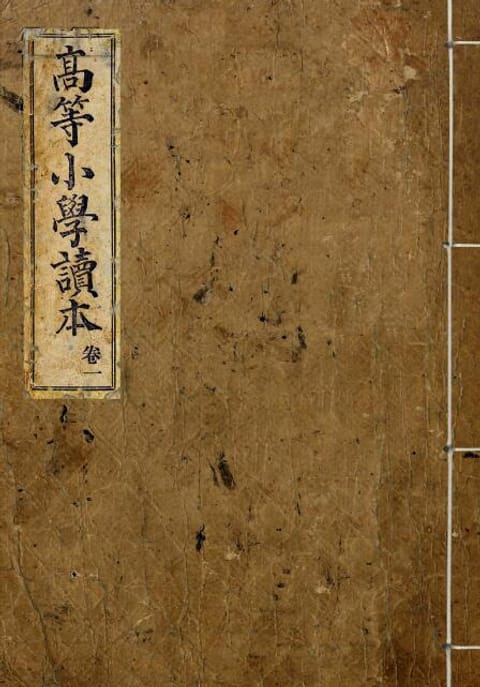 高等小學讀本
卷一